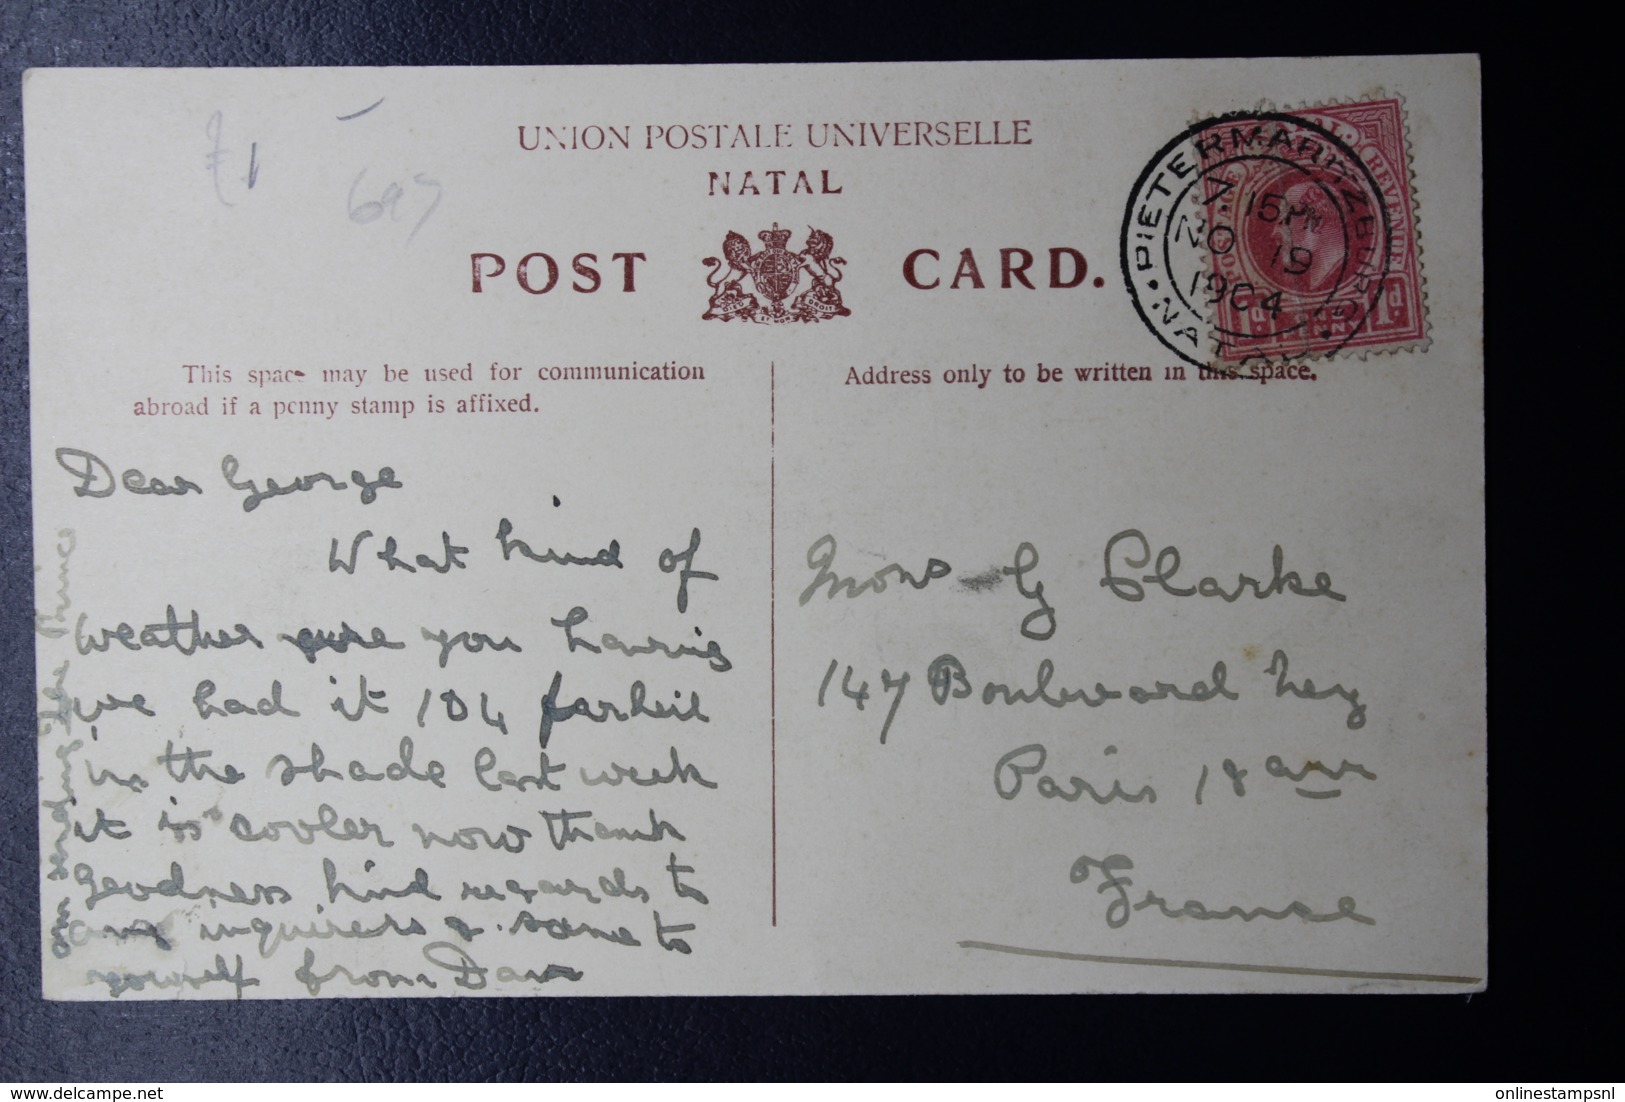 £1
697
UNION POSTALE UNIVERSELLE
NATAL
POST CARD.
PIETERMARITZBURG
7.15PM
NO 19
1904
NATAL
POSTAGE REVENUE
1d 1d
This space may be used for communication
abroad if a penny stamp is affixed.
Address only to be written in this space.
Dear George
What kind of
weather are you having
we had it 104 farheit
in the shade last week
it is cooler now thank
Goodness kind regards to
any inquirers & same to
yourself from Dave
am sending the
Mons G Clarke
147 Boulward Ney
Paris 18 arr
France
delcampe.net
onlinestampsnl